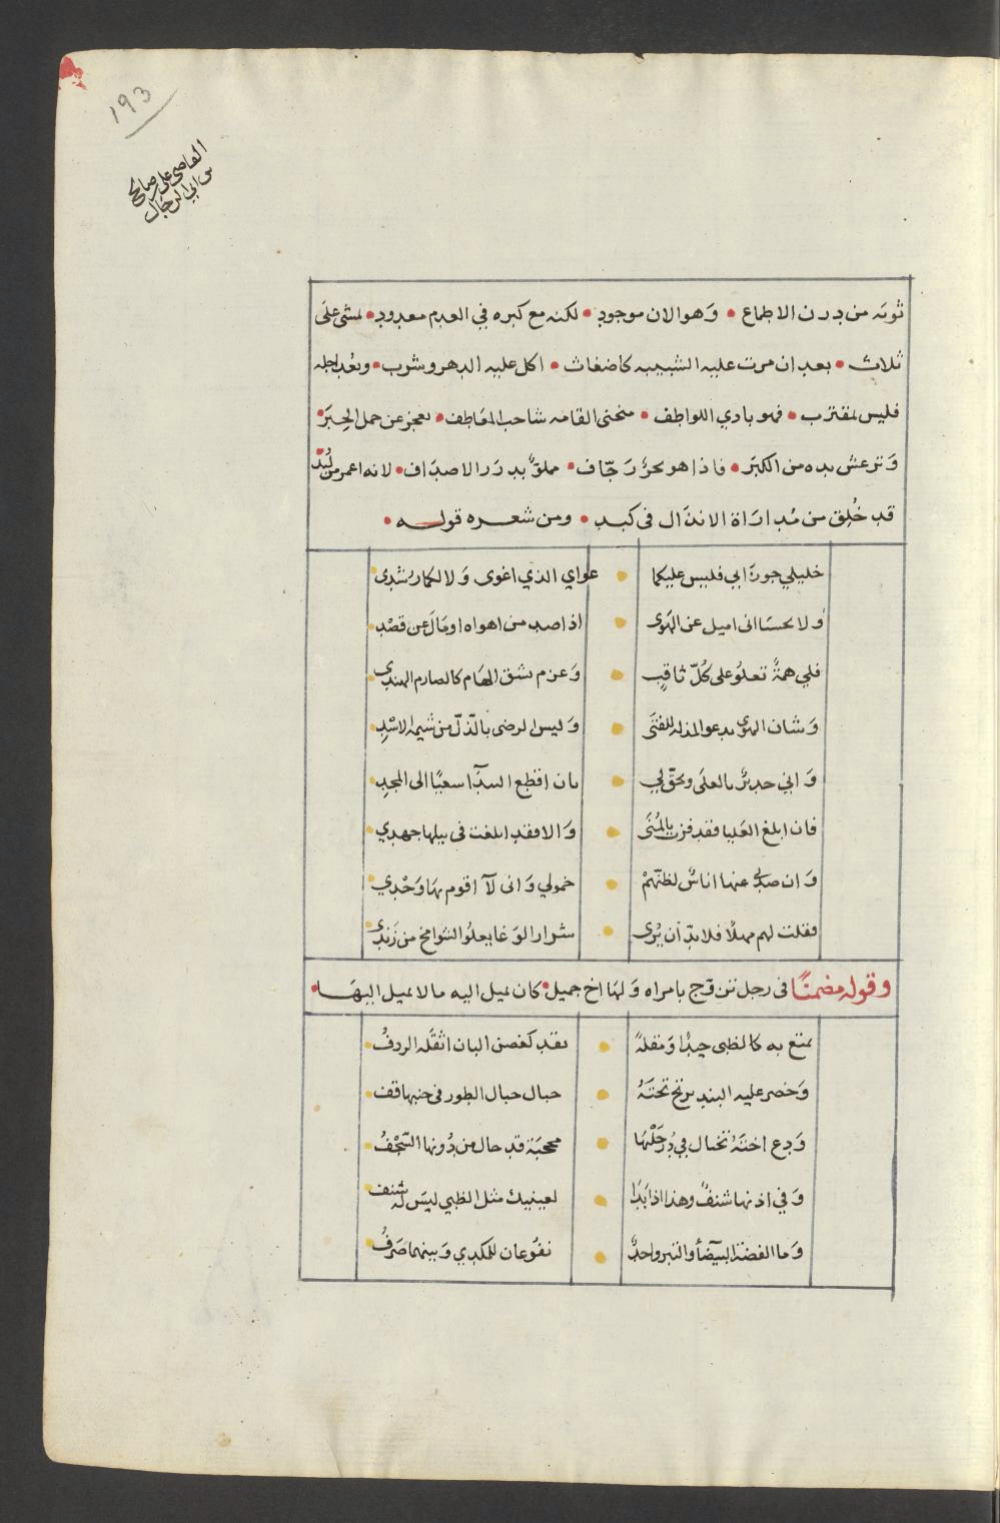 193
القاضي علي بن صالح
بن ابي الرجال
ثوبه من درن الاطماع • وهو الان موجود • لكنه مع كبره في العدم معدود • يمشي على
ثلاث • بعد ان مرت عليه الشبيبه كاضغاث • اكل عليه الدهر وشرب • وبعُد اجله
فليس بمقترب • فهو بادي اللواطف • منحني القامه شاحب المعاطف • يعجز عن حمل الحِبَر •
وترعش يده من الكبَر • فاذا هو بحرٌ رجّاف • مملوٌ بدرر الاصداف • لانه اعمر من لُبد •
قد خُلِق من مُداراة الانذال في كبد • ومن شعره قوله •
خليلي جورَا بي فليس عليكما • غواي الذي اغوى ولا لكما رُشدي •
ولا تحسبا اني اميل عن الهوى • اذا صد من اهواه او مال عن قصدِ •
فلي همةٌ تعلُو على كُلّ ثاقبٍ • وعزم يشق الهام كالصارم الهندي •
وشان الهوى يدعو المذله للفتى • وليس الرضى بالذّل من شيمة الاسْدِ •
واني جديرٌ بالعلى ويحقّ لي • بان اقطع البيدا سعيًا الى المجدِ •
فان ابلغ العليا فقد فزت بالمُنى • والا فقد ابلغت في نيلها جهدي •
وان صدني عنها اناسٌ لظنّهمْ • خمولي واني لا اقوم بها وَحْدي •
فقلت لهم مهلًا فلا بدّ أن يُرى • شرار الوغا يعلُو الشوامخ من زَندي •
وقوله مضمنًا في رجل تزوّج بامراه ولها اخ جميل • كان يميل اليه ما لا يميل اليها •
تمتع به كالظبي جيدًا ومقلةً • بقد كغصن البان اثقله الردفُ •
وخصر عليه البند يرتج تحتَهُ • حبال حبال الطور في جنبها قف •
ودع اختهُ تختال في دُرحَلْيها • محجبَة قد حال من دُونها السّجْفُ •
وفي اذنها شنفٌ وهذا اذا بَدَا • لعينيك مثل الظبي ليسَ له شنف •
وما الفضة البيضأ والتبر واحدٌ • نفوعان للمكدي وبينهما صَرفُ •